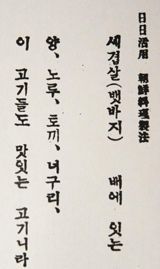 日日活用 朝鮮料理製法
세겹살(뱃바지) 배에 잇는
양、노루、토끼、너구리、
이 고기들도 맛잇는 고기니라